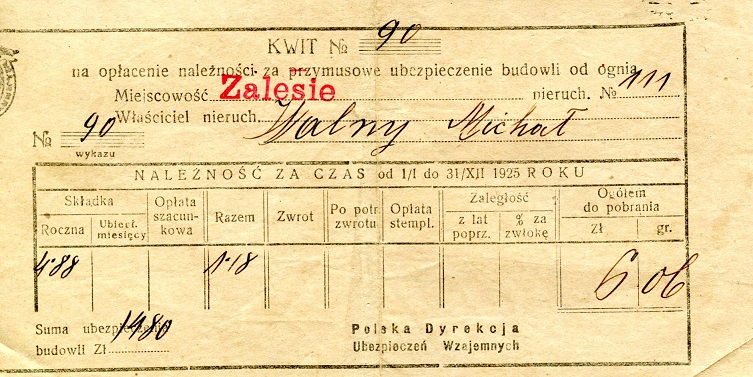 KWIT № 90
na opłacenie należności za przymusowe ubezpieczenie budowli od ognia
Miejscowość Zalesie nieruch. № 111
Właściciel nieruch. Walny Michał
№ 90
wykazu
NALEŻNOŚĆ ZA CZAS od 1/I do 31/XII 1925 ROKU
Składka
Roczna
Ubiegł. miesięcy
Opłata szacunkowa
Razem
Zwrot
Po potr. zwrotu
Opłata stempl.
Zaległość
z lat poprz.
% za zwłokę
Ogółem do pobrania
Zł
gr.
4·88 1·18 6 06
Suma ubezpieczenia
budowli Zł 1480
Polska Dyrekcja
Ubezpieczeń Wzajemnych